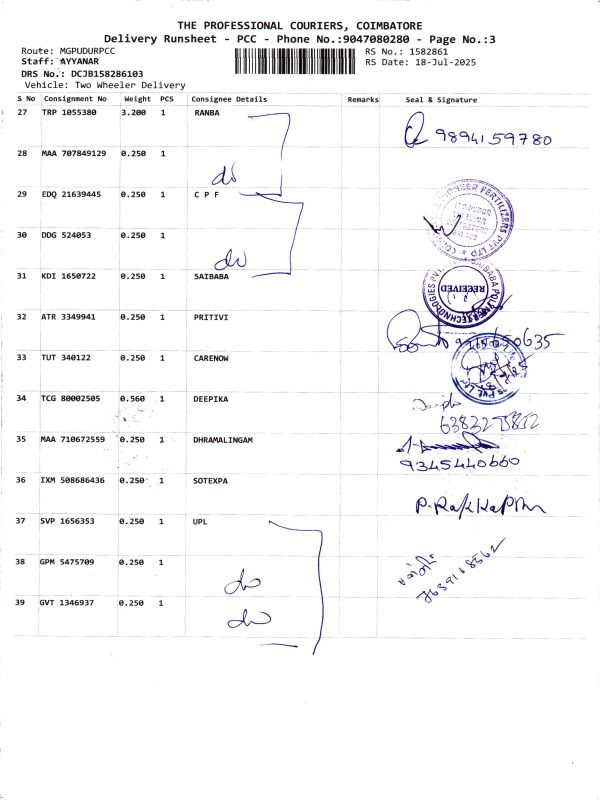 THE PROFESSIONAL COURIERS, COIMBATORE
Delivery Runsheet - PCC - Phone No.:9047080280 - Page No.:3
Route: MGPUDURPCC
RS No.: 1582861
Staff: AYYANAR
RS Date: 18-Jul-2025
DRS No.: DCJB158286103
Vehicle: Two Wheeler Delivery
S No Consignment No Weight PCS Consignee Details Remarks Seal & Signature
27 TRP 1055380 3.200 1 RANBA
9894159780
28 MAA 707849129 0.250 1
do
29 EDQ 21639445 0.250 1 C P F
30 DDG 524053 0.250 1
do
31 KDI 1650722 0.250 1 SAIBABA
RECEIVED
32 ATR 3349941 0.250 1 PRITIVI
33 TUT 340122 0.250 1 CARENOW
34 TCG 80002505 0.560 1 DEEPIKA
35 MAA 710672559 0.250 1 DHRAMALINGAM
9345440660
36 IXM 508686436 0.250 1 SOTEXPA
37 SVP 1656353 0.250 1 UPL
38 GPM 5475709 0.250 1
do
39 GVT 1346937 0.250 1
do